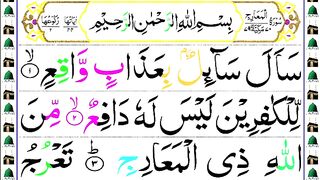 بِسْمِ اللّٰهِ الرَّحْمٰنِ الرَّحِيْمِ
سَاَلَ سَآئِلٌۢ بِعَذَابٍ وَّاقِعٍ ۙ﴿۱﴾
لِّلْكٰفِرِيْنَ لَيْسَ لَهٗ دَافِعٌ ۙ﴿۲﴾ مِّنَ
اللّٰهِ ذِی الْمَعَارِجِ ؕ﴿۳﴾ تَعْرُجُ